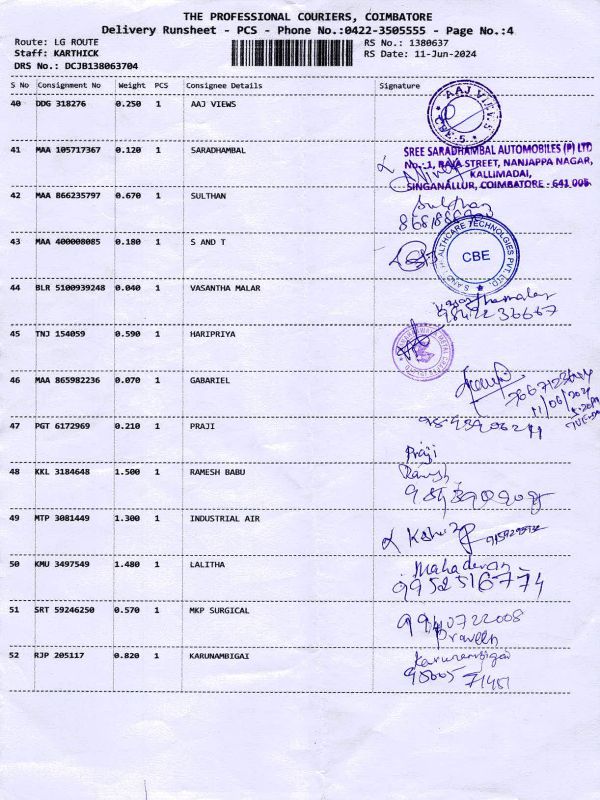 THE PROFESSIONAL COURIERS, COIMBATORE
Delivery Runsheet - PCS - Phone No.:0422-3505555 - Page No.:4
Route: LG ROUTE
RS No.: 1380637
Staff: KARTHICK
RS Date: 11-Jun-2024
DRS No.: DCJB138063704
S No Consignment No Weight PCS Consignee Details Signature
40 DDG 318276 0.250 1 AAJ VIEWS
AAJ VIEWS
41 MAA 105717367 0.120 1 SARADHAMBAL
SREE SARADHAMBAL AUTOMOBILES (P) LTD
No.:1, RAJA STREET, NANJAPPA NAGAR,
KALLIMADAI,
SINGANALLUR, COIMBATORE - 641 005
42 MAA 866235797 0.670 1 SULTHAN
Sulthan
43 MAA 400008085 0.180 1 S AND T
S AND T HEALTHCARE TECHNOLGIES PVT. LTD.
CBE
44 BLR 5100939248 0.040 1 VASANTHA MALAR
Vasanthamalar
98422 36667
45 TNJ 154059 0.590 1 HARIPRIYA
46 MAA 865982236 0.070 1 GABARIEL
11/06/2024
47 PGT 6172969 0.210 1 PRAJI
Praji
48 KKL 3184648 1.500 1 RAMESH BABU
Ramesh
49 MTP 3081449 1.300 1 INDUSTRIAL AIR
50 KMU 3497549 1.480 1 LALITHA
Mahadevan
9952516774
51 SRT 59246250 0.570 1 MKP SURGICAL
9940722008
Praveen
52 RJP 205117 0.820 1 KARUNAMBIGAI
Karunambigai
98665 71451